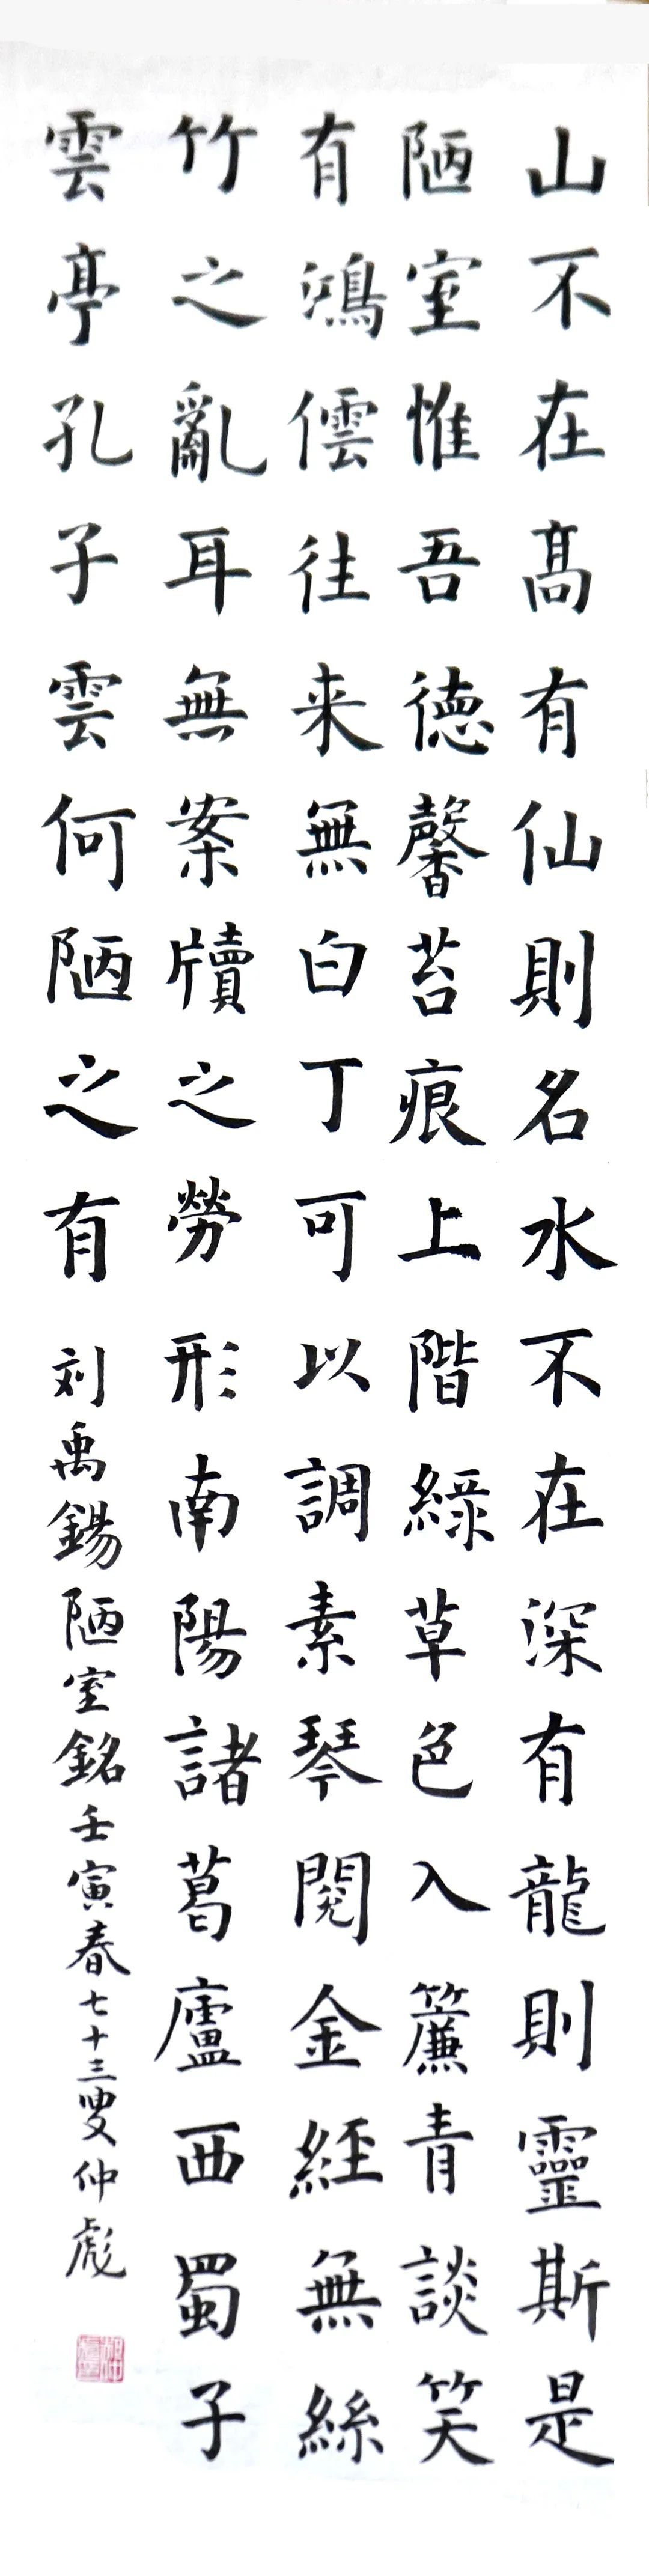 山不在髙有仙則名水不在深有龍則靈斯是
陋室惟吾徳馨苔痕上階緑草色入簾青談笑
有鴻儒往来無白丁可以調素琴閱金経無絲
竹之亂耳無案牘之勞形南陽諸葛廬西蜀子
雲亭孔子雲何陋之有
刘禹錫陋室銘壬寅春七十三叟仲彪